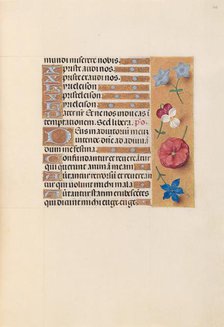 mundi miserere nobis.
Xpiste audi nos.
Xpiste exaudi nos.
Kyrieleison
Xpisteleison
Kyrieleison
Pater nr̄ Et ne nos inducas i
temptationem. Sed libera. ps̄.
Deus in adiutorium meū
intende: dñe ad adiuuā
dum me festina.
Confundantur et reuereant̄
qui querunt animam meā
Auertantur retrorsum et eru
qui uolunt michi mala
Auertantur statim erubescētes
qui dicunt michi euge euge.